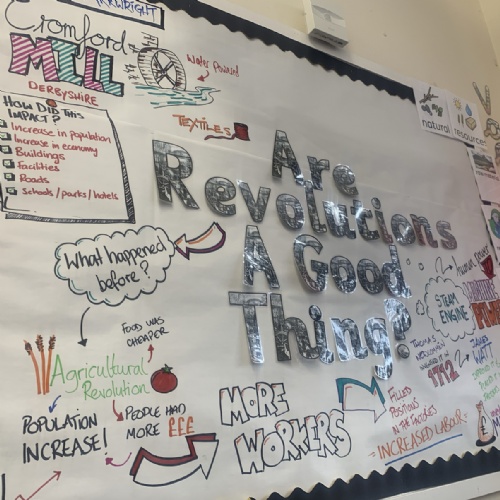 ARKWRIGHT
Cromford
MILL
DERBYSHIRE
Water Powered
TEXTILES
HOW DID THIS
IMPACT?
Increase in population
Increase in economy
Buildings
Facilities
Roads
Schools/parks/hotels
Are
Revolutions
A Good
Thing?
What happened
before?
FOOD WAS
CHEAPER
Agricultural
Revolution
POPULATION
INCREASE!
PEOPLE HAD
MORE £££
MORE
WORKERS
FILLED
POSITIONS
IN THE FACTORIES
= INCREASED LABOUR =
STEAM
ENGINE
THOMAS
NEWCOMEN
1712
JAMES
WATT
human power
natural
resources